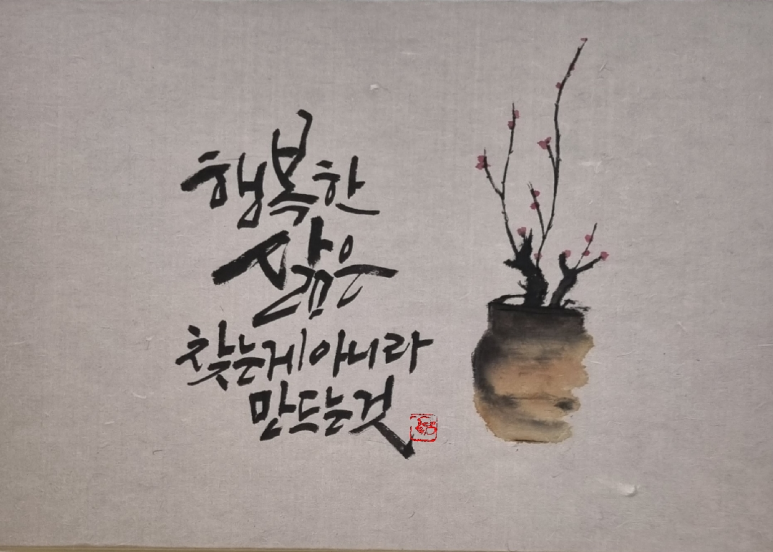 행복한
삶은
찾는게아니라
만드는것